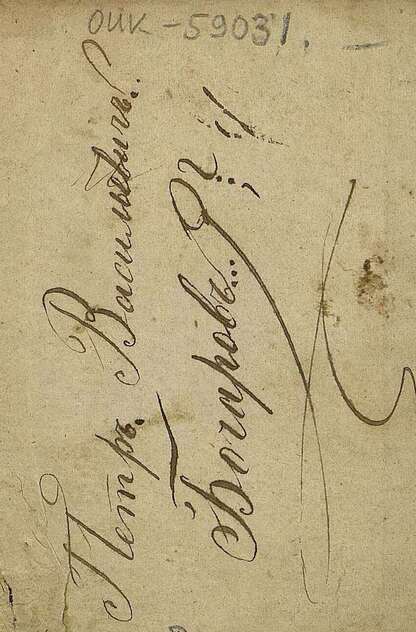 ОИК-59031.
Петръ. Васильевичъ...
Бочаровъ...